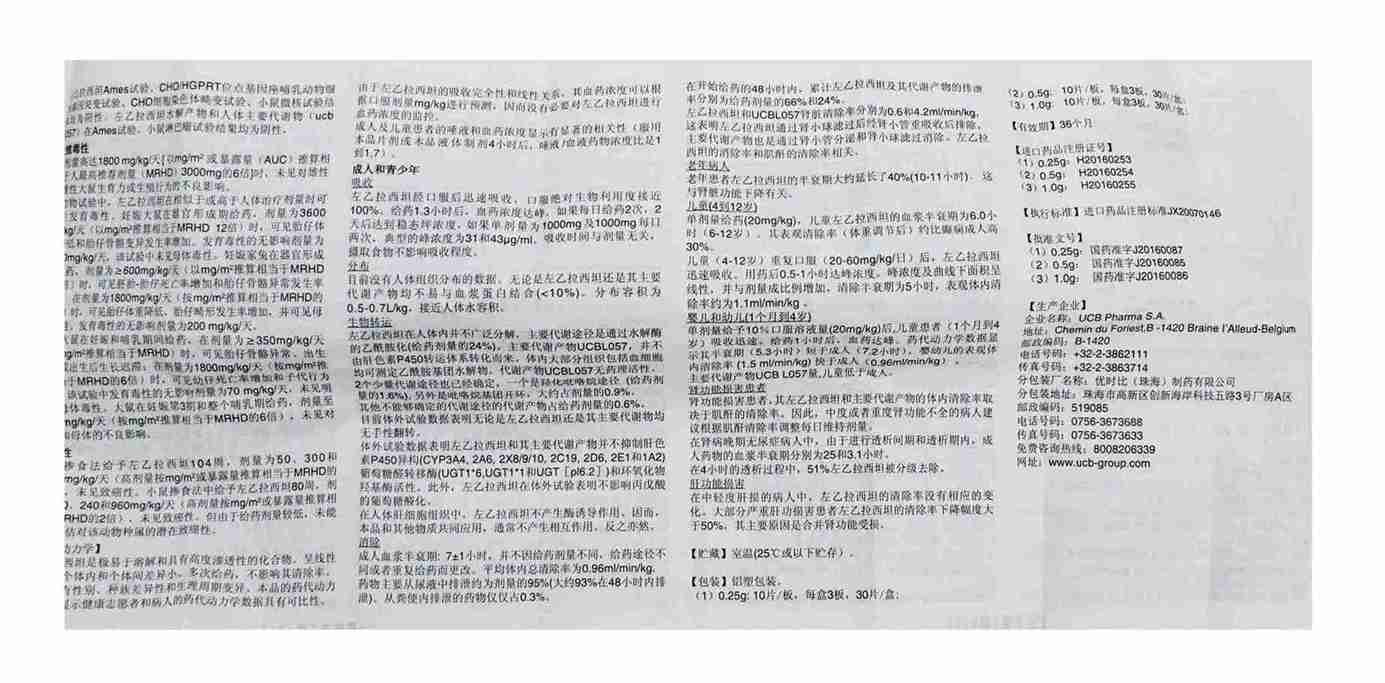 Ames试验、CHO/HGPRT位点基因座哺乳动物细
突变试验、CHO细胞染色体畸变试验、小鼠微核试验结
均为阴性。左乙拉西坦水解产物和人体主要代谢物（ucb
057）在Ames试验、小鼠淋巴瘤试验结果均为阴性。
殖毒性
剂量高达1800 mg/kg/天[以mg/m²或暴露量（AUC）推算相
于人最高推荐剂量（MRHD）3000mg的6倍]时，未见对雄性
雌性大鼠生育力或生殖行为的不良影响。
动物试验中，左乙拉西坦在相似于或高于人体治疗剂量时可
发育毒性。妊娠大鼠在器官形成期给药，剂量为3600
g/天（以mg/m²推算相当于MRHD 12倍）时，可见胎仔体
低和胎仔骨骼变异发生率增加。发育毒性的无影响剂量为
0mg/kg/天，该试验中未见母体毒性。妊娠家兔在器官形成
药，剂量为≥600mg/kg/天（以mg/m²推算相当于MRHD
）时，可见胚胎-胎仔死亡率增加和胎仔骨骼异常发生率
，在剂量为1800mg/kg/天（按mg/m²推算相当于MRHD的
）时，可见胎仔体重降低、胎仔畸形发生率增加，并可见母
性，发育毒性的无影响剂量为200 mg/kg/天。
大鼠在妊娠和哺乳期间给药，在剂量为≥350mg/kg/天
g/m²推算相当于MRHD）时，可见胎仔骨骼异常、出生
或出生后生长迟滞；在剂量为1800mg/kg/天（按mg/m²推
于MRHD的6倍）时，可见幼仔死亡率增加和子代行为
该试验中发育毒性的无影响剂量为70 mg/kg/天，未见明
母体毒性。大鼠在妊娠第3期和整个哺乳期给药，剂量至
mg/kg/天（按mg/m²推算相当于MRHD的6倍），未见对
和母体的不良影响。
性
掺食法给予左乙拉西坦104周，剂量为50、300和
mg/kg/天（高剂量按mg/m²或暴露量推算相当于MRHD的
，未见致癌性。小鼠掺食法中给予左乙拉西坦80周，剂
、240和960mg/kg/天（高剂量按mg/m²或暴露量推算相
RHD的2倍），未见致癌性。但由于给药剂量较低，未能
估对该动物种属的潜在致癌性。
动力学】
西坦是极易于溶解和具有高度渗透性的化合物。呈线性
个体内和个体间差异小。多次给药，不影响其清除率。
有性别、种族差异性和生理周期变异。本品的药代动力
显示健康志愿者和病人的药代动力学数据具有可比性。
由于左乙拉西坦的吸收完全性和线性关系，其血药浓度可以根
据口服剂量mg/kg进行预测，因而没有必要对左乙拉西坦进行
血药浓度的监控。
成人及儿童患者的唾液和血药浓度显示有显著的相关性（服用
本品片剂或本品液体制剂4小时后，唾液/血液药物浓度比是1
到1.7）。
成人和青少年
吸收
左乙拉西坦经口服后迅速吸收，口服绝对生物利用度接近
100%。给药1.3小时后，血药浓度达峰。如果每日给药2次，2
天后达到稳态坪浓度。如果单剂量为1000mg及1000mg每日
两次，典型的峰浓度为31和43μg/ml。吸收时间与剂量无关。
摄取食物不影响吸收程度。
分布
目前没有人体组织分布的数据。无论是左乙拉西坦还是其主要
代谢产物均不易与血浆蛋白结合(<10%)。分布容积为
0.5-0.7L/kg，接近人体水容积。
生物转运
左乙拉西坦在人体内并不广泛分解，主要代谢途径是通过水解酶
的乙酰胺化(给药剂量的24%)。主要代谢产物UCBL057，并不
由肝色素P450转运体系转化而来，体内大部分组织包括血细胞
均可测定乙酰胺基团水解物。代谢产物UCBL057无药理活性。
2个少量代谢途径也已经确定，一个是羟化吡咯烷途径（给药剂
量的1.6%),另外是吡咯烷基团开环，大约占剂量的0.9%。
其他不能够确定的代谢途径的代谢产物占给药剂量的0.6%。
目前体外试验数据表明无论是左乙拉西坦还是其主要代谢物均
无手性翻转。
体外试验数据表明左乙拉西坦和其主要代谢产物并不抑制肝色
素P450异构(CYP3A4, 2A6, 2X8/9/10, 2C19, 2D6, 2E1和1A2)
葡萄糖醛转移酶(UGT1*6,UGT1*1和UGT［pI6.2］)和环氧化物
羟基酶活性。此外，左乙拉西坦在体外试验表明不影响丙戊酸
的葡萄糖醛化。
在人体肝细胞组织中，左乙拉西坦不产生酶诱导作用。因而，
本品和其他物质共同应用，通常不产生相互作用。反之亦然。
消除
成人血浆半衰期: 7±1小时，并不因给药剂量不同，给药途径不
同或者重复给药而更改。平均体内总清除率为0.96ml/min/kg.
药物主要从尿液中排泄约为剂量的95%(大约93%在48小时内排
泄)。从粪便内排泄的药物仅仅占0.3%。
在开始给药的48小时内，累计左乙拉西坦及其代谢产物的排泄
率分别为给药剂量的66%和24%。
左乙拉西坦和UCBL057肾脏清除率分别为0.6和4.2ml/min/kg,
这表明左乙拉西坦通过肾小球滤过后经肾小管重吸收后排除。
主要代谢产物也是通过肾小管分泌和肾小球滤过消除。左乙拉
西坦的消除率和肌酐的清除率相关。
老年病人
老年患者左乙拉西坦的半衰期大约延长了40%(10-11小时)。这
与肾脏功能下降有关。
儿童(4到12岁)
单剂量给药(20mg/kg)，儿童左乙拉西坦的血浆半衰期为6.0小
时（6-12岁）。其表观清除率（体重调节后）约比癫痫成人高
30%。
儿童（4-12岁）重复口服（20-60mg/kg/日）后，左乙拉西坦
迅速吸收。用药后0.5-1小时达峰浓度。峰浓度及曲线下面积呈
线性，并与剂量成比例增加。清除半衰期为5小时，表观体内清
除率约为1.1ml/min/kg 。
婴儿和幼儿(1个月到4岁)
单剂量给予10%口服溶液量(20mg/kg)后,儿童患者（1个月到4
岁）吸收迅速，给药1小时后，血药达峰。药代动力学数据显
示其半衰期（5.3小时）短于成人（7.2小时）。婴幼儿的表观体
内清除率 (1.5 ml/min/kg) 快于成人（0.96ml/min/kg）。
主要代谢产物UCB L057量,儿童低于成人。
肾功能损害患者
肾功能损害患者,其左乙拉西坦和主要代谢产物的体内清除率取
决于肌酐的清除率。因此，中度或者重度肾功能不全的病人建
议根据肌酐清除率调整每日维持剂量。
在肾病晚期无尿症病人中，由于进行透析间期和透析期内，成
人药物的血浆半衰期分别为25和3.1小时。
在4小时的透析过程中，51%左乙拉西坦被分级去除。
肝功能损害
在中轻度肝损的病人中，左乙拉西坦的清除率没有相应的变
化。大部分严重肝功损害患者左乙拉西坦的清除率下降幅度大
于50%，其主要原因是合并肾功能受损。
【贮藏】室温(25℃或以下贮存）。
【包装】铝塑包装。
（1）0.25g: 10片/板，每盒3板，30片/盒;
（2）0.5g: 10片/板，每盒3板，30片/盒;
（3）1.0g: 10片/板，每盒3板，30片/盒。
【有效期】36个月
【进口药品注册证号】
（1）0.25g：H20160253
（2）0.5g： H20160254
（3）1.0g： H20160255
【执行标准】进口药品注册标准JX20070146
【批准文号】
（1）0.25g： 国药准字J20160087
（2）0.5g： 国药准字J20160085
（3）1.0g： 国药准字J20160086
【生产企业】
企业名称：UCB Pharma S.A.
地址：Chemin du Foriest,B -1420 Braine l'Alleud-Belgium
邮政编码：B-1420
电话号码：+32-2-3862111
传真号码：+32-2-3863714
分包装厂名称：优时比（珠海）制药有限公司
分包装地址：珠海市高新区创新海岸科技五路3号厂房A区
邮政编码：519085
电话号码：0756-3673688
传真号码：0756-3673633
免费咨询热线：8008206339
网址：www.ucb-group.com